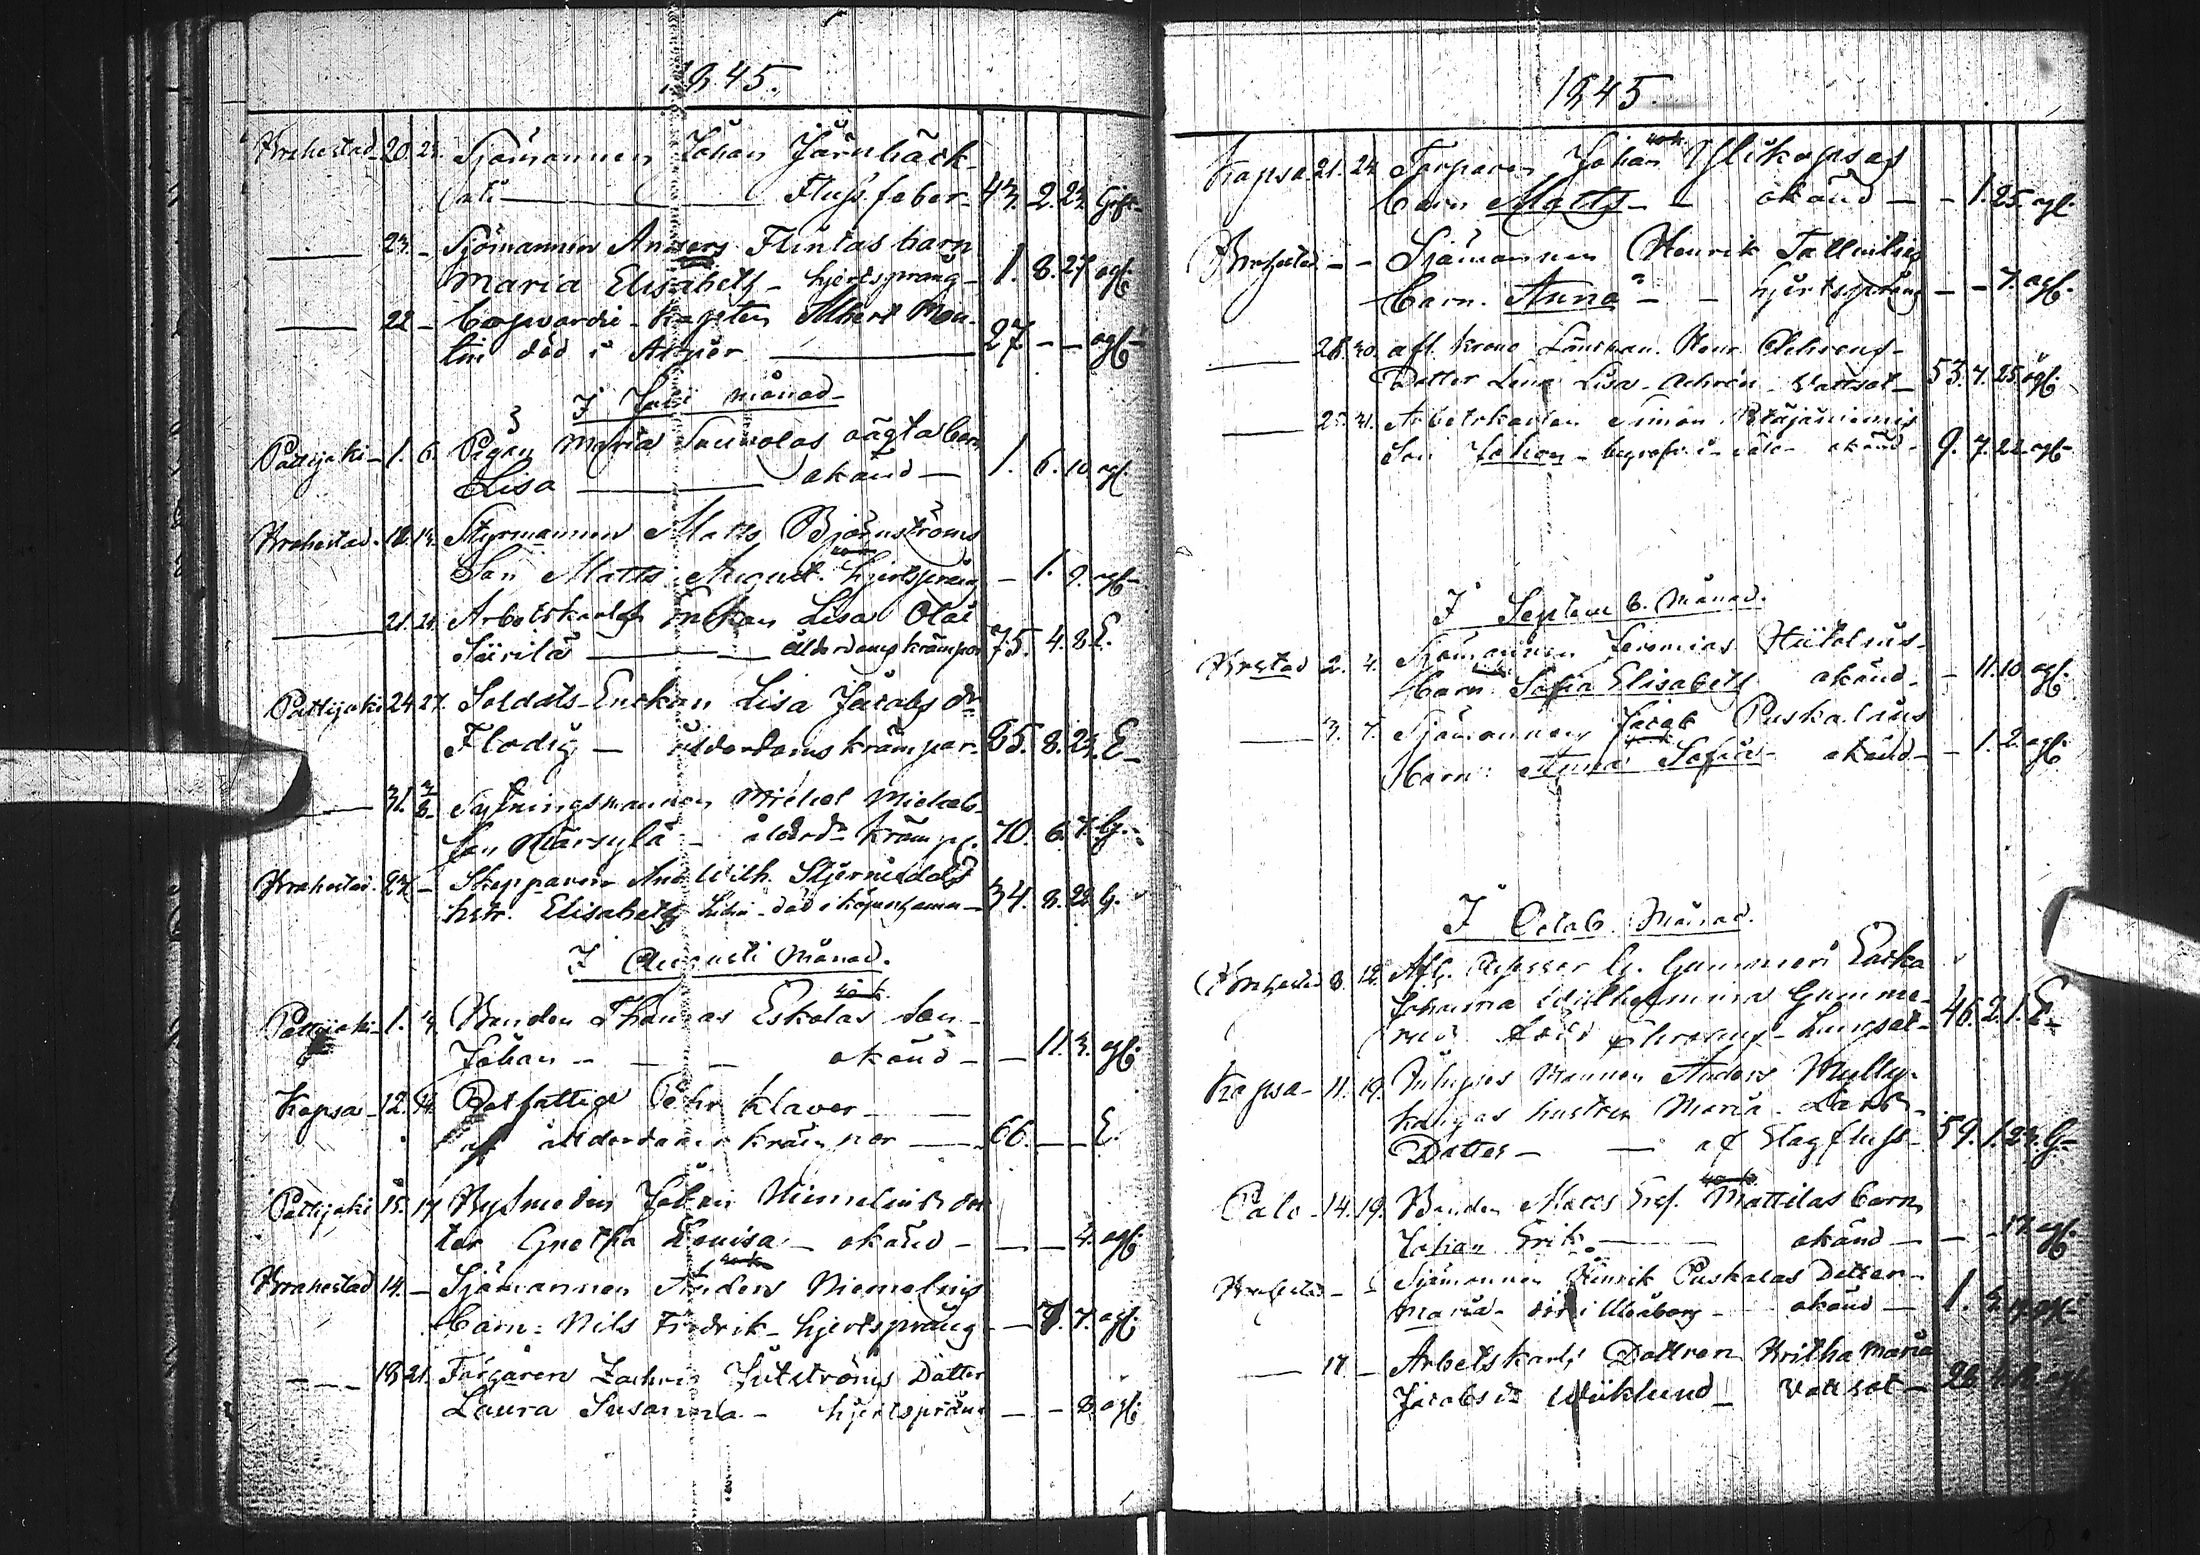 1845.
Brahestad 20. 23. Sjömannen Johan Järnbäck
Flussfeber 43. 2. 23. Gift
— 23. – Sjömannen Anders Flintas barn
Maria Elisabeth – hjertsprång – 1. 8. 27 ogf.
— 22 – Coopvardie-Kapten Albert Mon-
tin död i 27 – – ogf.
I Juli månad
Pattijoki – 1. 6. Pigan Maria Saunolas oägta barn
Lisa — okänd — 1. 6. 10 ogf.
Brahestad. 12. 13. Styrmannen Matts Björnströms
Son Matts August. hjertsprång – 1. 9. ogf.
— 21. 24. Arbetskarls Enkan Lisa Olai
Siirilä — ålderdomskrämpor 75. 4. 8. E.
Pattijoki 24. 27. Soldats-Enkan Lisa Jacobs dr
Flodig — ålderdoms krämpor. 85. 8. 23. E.
— 31. 3/8 Sytningsmannen Michel Michels-
son Märsylä – ålderd. krämp. 70. 6. 7. G.
Brahestad. 27. – Skepparen And. Wilh. Stjerndals
hstr. Elisabeth död i Köpenhamn – 34. 8. 29. G.
I Augusti Månad.
40 k.
Pattijoki – 1. 3. Bonden Thomas Eskolas Son
Johan – – – okänd – – 11. 3. ogf.
Kopsa – 12. 14. Rotfattige Pehr Klaver – –
af ålderdoms krämpor — 66. – – E.
Pattijoki 15. 17. Bysmeden Johan Himmelinds dot
ter Gretha Lovisa – okänd – – – 4. ogf.
Brahestad 14. – Sjömannen Anders Niemelins
barn: Nils Fredrik – hjertsprång – – 7. 7. ogf.
— 18. 21. Färgaren Zachris Jutströms Dotter
Laura Susanna – hjertsprång – – 8. ogf.
1845.
40 k.
Kopsa 21. 24. Torparen Johan Ylikopsas
barn Matts – – okänd – – 1. 25. ogf.
Brahestad – – Sjömannen Henrik
barn. Anna – – hjertsprång – – 7. ogf.
— 28. 30. afl. Krono Länsman. Henr. Achrens
Dotter Lena Lisa Achrén – Vattsot – 53. 7. 25. ogf.
— 25. 31. Arbetskarlen Simon Petäjäniemis
Son Johan – begrafv. i – okänd – 9. 7. 22. ogf.
I Septemb. Månad.
Brstad 2. 4. Sjömannen Jeremias
barn Sofia Elisabeth okänd – – 11. 10. ogf.
— 3. 7. Sjömannen Jacob Puskalas
barn: Anna Sofia – okänd – – 1. 2. ogf.
I Octob. Månad.
Brahestad 8. 12. Afl. G. Gummeri Enka
Johanna Wilhelmina Gumme-
rus född – Lungsot – 46. 2. 1. E.
Kopsa – 11. 19. Inhyses Mannen Anders Mylly-
kangas hustru Maria Lars
Dotter – – af Slagfluss – 59. 1. 23. G.
40 k.
Palo – 14. 19. Bonden Matts Mattilas barn
Johan Erik. – – okänd – – – 17. ogf.
Brahestad – – Sjömannen Henrik Puskalas Dotter
Maria – död i Uleåborg – okänd – 1.
— 17. – Arbetskarls Dottren Britha Maria
Jacobs dr Wiiklund – Vattsot –